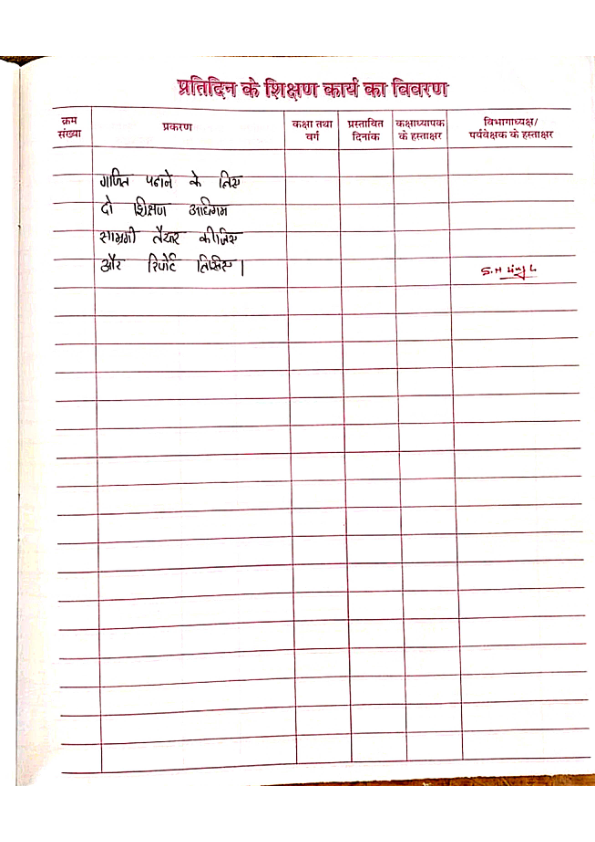 प्रतिदिन के शिक्षण कार्य का विवरण
क्रम संख्या
प्रकरण
कक्षा तथा वर्ग
प्रस्तावित दिनांक
कक्षाध्यापक के हस्ताक्षर
विभागाध्यक्ष/ पर्यवेक्षक के हस्ताक्षर
गणित पढाने के लिए
दो शिक्षण अधिगम
सामग्री तैयार कीजिए
और रिपोर्ट लिखिए।